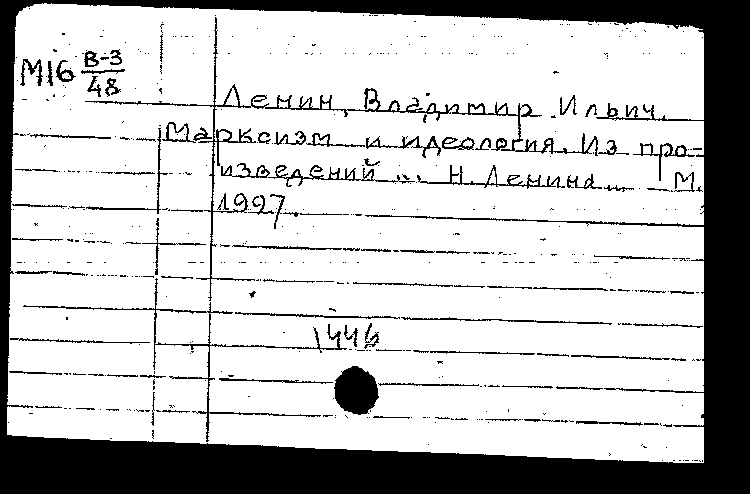 М16 В-3/48
Ленин, Владимир Ильич.
Марксизм и идеология. Из про-
изведений ... Н. Ленина ... М.
1927.
1446